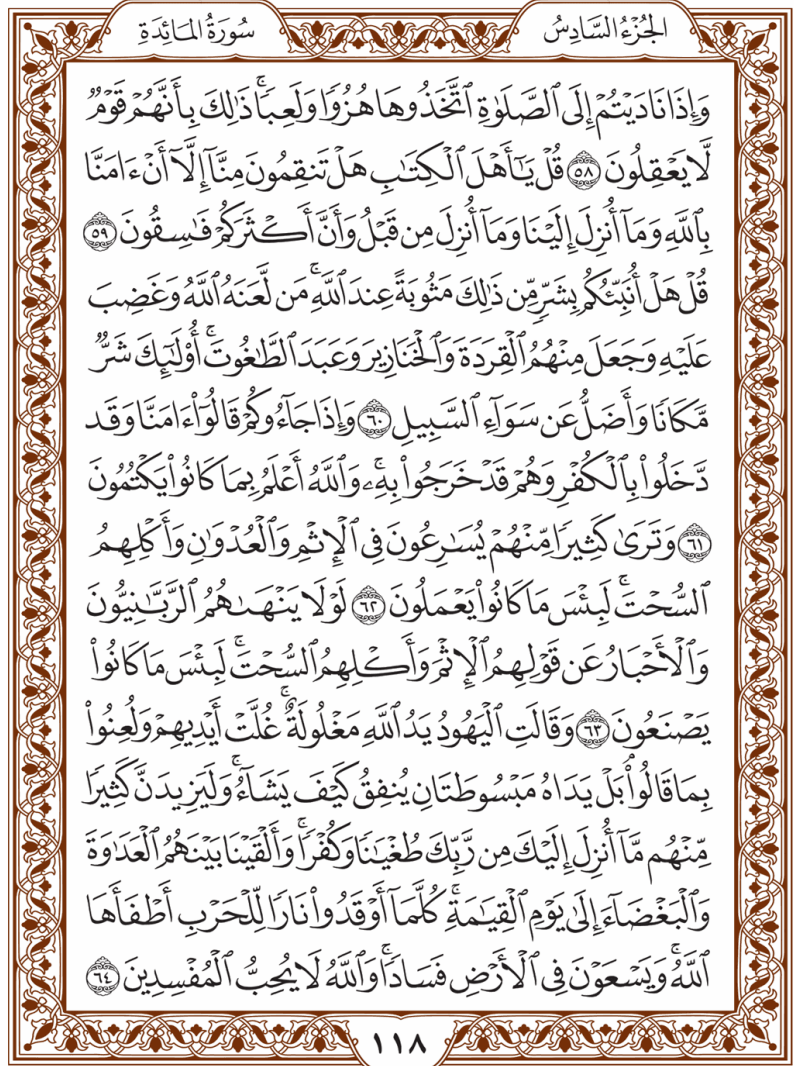 الجُزْءُ السَّادِسُ
سُورَةُ المَائِدَةِ
وَإِذَا نَادَيْتُمْ إِلَى ٱلصَّلَوٰةِ ٱتَّخَذُوهَا هُزُوٗا وَلَعِبٗاۚ ذَٰلِكَ بِأَنَّهُمْ قَوْمٞ
لَّا يَعْقِلُونَ ٥٨ قُلْ يَـٰٓأَهْلَ ٱلْكِتَـٰبِ هَلْ تَنقِمُونَ مِنَّآ إِلَّآ أَنْ ءَامَنَّا
بِٱللَّهِ وَمَآ أُنزِلَ إِلَيْنَا وَمَآ أُنزِلَ مِن قَبْلُ وَأَنَّ أَكْثَرَكُمْ فَـٰسِقُونَ ٥٩
قُلْ هَلْ أُنَبِّئُكُم بِشَرّٖ مِّن ذَٰلِكَ مَثُوبَةً عِندَ ٱللَّهِۚ مَن لَّعَنَهُ ٱللَّهُ وَغَضِبَ
عَلَيْهِ وَجَعَلَ مِنْهُمُ ٱلْقِرَدَةَ وَٱلْخَنَازِيرَ وَعَبَدَ ٱلطَّـٰغُوتَۚ أُوْلَـٰٓئِكَ شَرّٞ
مَّكَانٗا وَأَضَلُّ عَن سَوَآءِ ٱلسَّبِيلِ ٦٠ وَإِذَا جَآءُوكُمْ قَالُوٓاْ ءَامَنَّا وَقَد
دَّخَلُواْ بِٱلْكُفْرِ وَهُمْ قَدْ خَرَجُواْ بِهِۦۚ وَٱللَّهُ أَعْلَمُ بِمَا كَانُواْ يَكْتُمُونَ
٦١ وَتَرَىٰ كَثِيرٗا مِّنْهُمْ يُسَـٰرِعُونَ فِي ٱلْإِثْمِ وَٱلْعُدْوَٰنِ وَأَكْلِهِمُ
ٱلسُّحْتَۚ لَبِئْسَ مَا كَانُواْ يَعْمَلُونَ ٦٢ لَوْلَا يَنْهَىٰهُمُ ٱلرَّبَّـٰنِيُّونَ
وَٱلْأَحْبَارُ عَن قَوْلِهِمُ ٱلْإِثْمَ وَأَكْلِهِمُ ٱلسُّحْتَۚ لَبِئْسَ مَا كَانُواْ
يَصْنَعُونَ ٦٣ وَقَالَتِ ٱلْيَهُودُ يَدُ ٱللَّهِ مَغْلُولَةٌۚ غُلَّتْ أَيْدِيهِمْ وَلُعِنُواْ
بِمَا قَالُواْۘ بَلْ يَدَاهُ مَبْسُوطَتَانِ يُنفِقُ كَيْفَ يَشَآءُۚ وَلَيَزِيدَنَّ كَثِيرٗا
مِّنْهُم مَّآ أُنزِلَ إِلَيْكَ مِن رَّبِّكَ طُغْيَـٰنٗا وَكُفْرٗاۚ وَأَلْقَيْنَا بَيْنَهُمُ ٱلْعَدَٰوَةَ
وَٱلْبَغْضَآءَ إِلَىٰ يَوْمِ ٱلْقِيَـٰمَةِۚ كُلَّمَآ أَوْقَدُواْ نَارٗا لِّلْحَرْبِ أَطْفَأَهَا
ٱللَّهُۚ وَيَسْعَوْنَ فِي ٱلْأَرْضِ فَسَادٗاۚ وَٱللَّهُ لَا يُحِبُّ ٱلْمُفْسِدِينَ ٦٤
١١٨